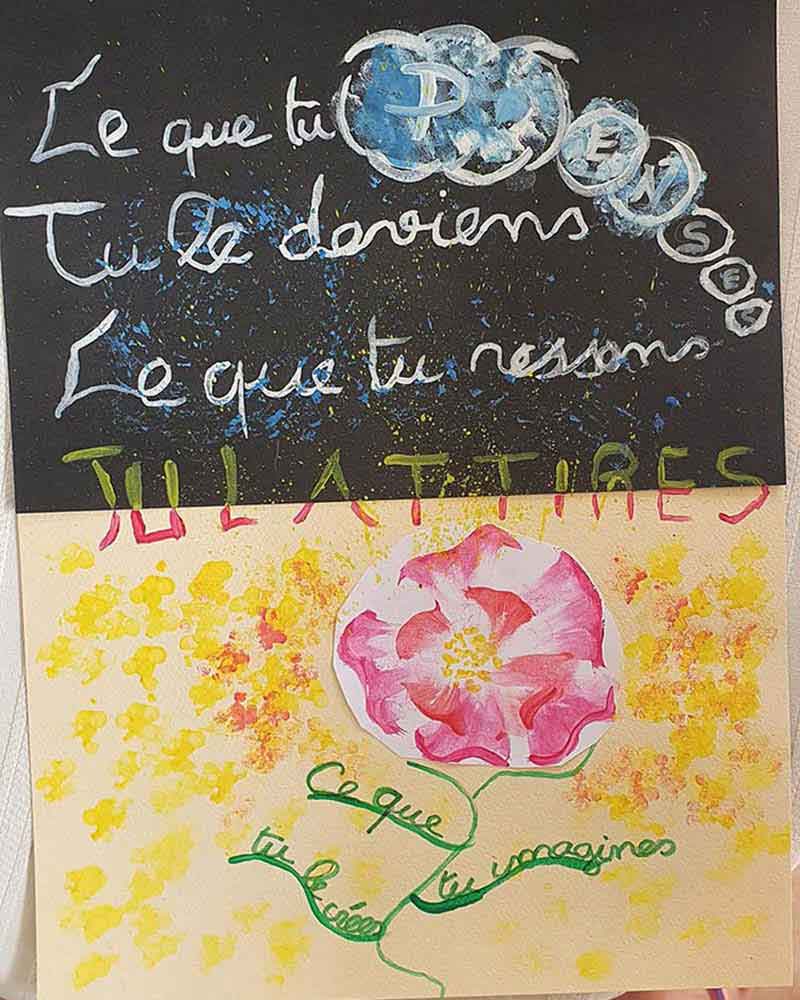 Ce que tu PENSES
Tu le deviens
Ce que tu ressens
TU L ATTIRES
Ce que
tu imagines
tu le crées